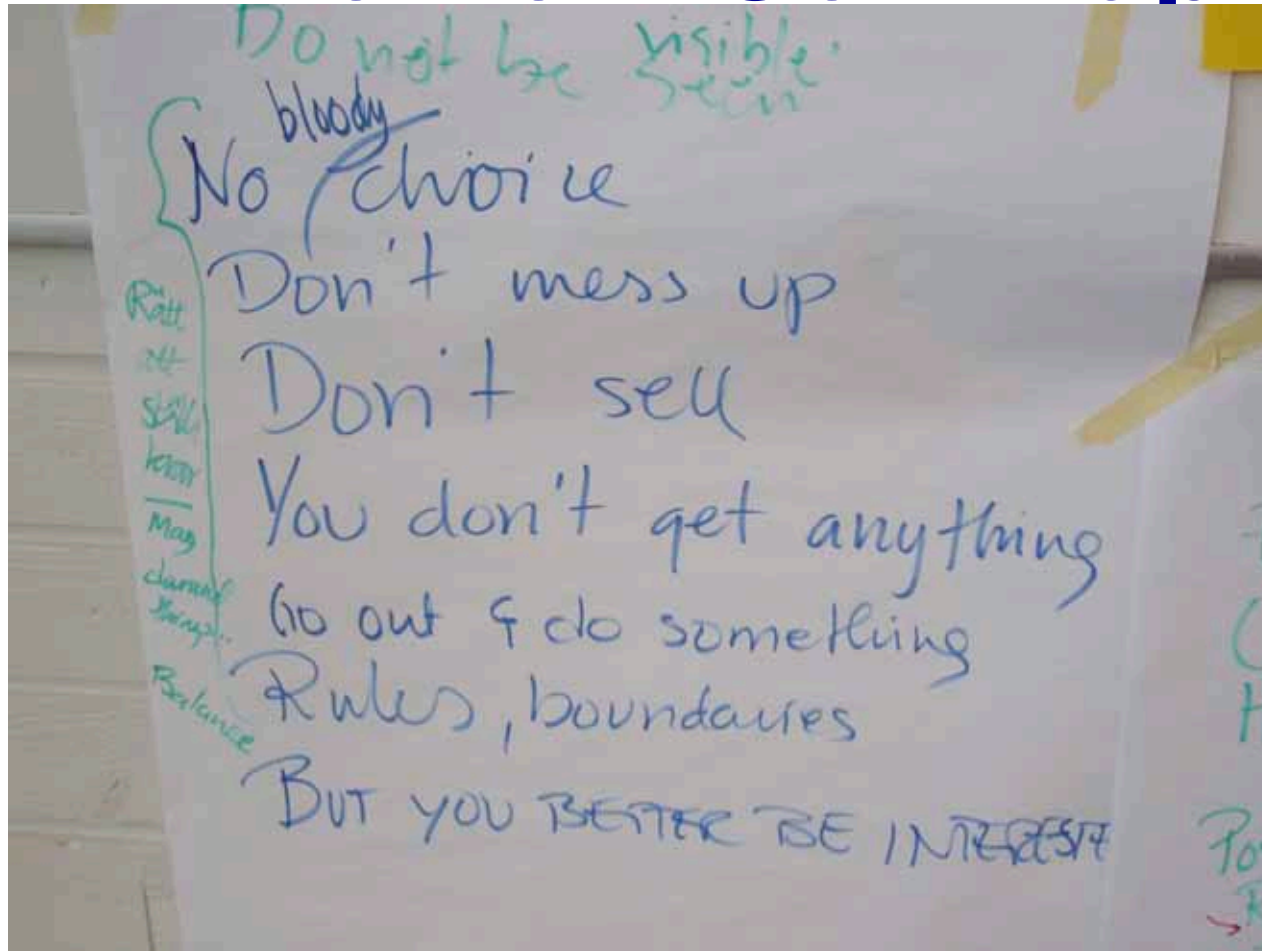 Do not be visible.
seen
bloody
No choice
Don't mess up
Don't sell
You don't get anything
Go out & do something
Rules, boundaries
BUT YOU BETTER BE INTERESTE
Rätt
att
May
Balance